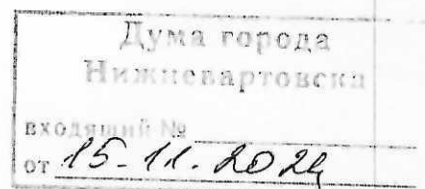 Дума города
Нижневартовска
входящий №
от 15-11.2024